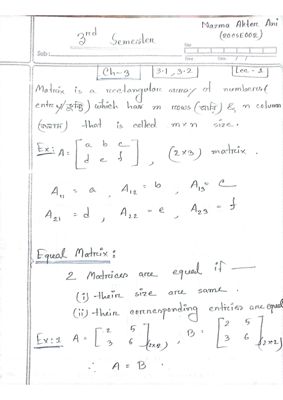 3rd Semester
Mazma Akter Ani
(20CSE002)
Sub :
Time :
Date : / /
Ch-3
3.1, 3.2
Lec - 1
Matrix is a rectangular array of numbers (
entry/ ) which has m rows ( ) & n column
( ) that is called m×n size.
Ex: A = [a b c
d e f] , (2×3) matrix.
A11 = a , A12 = b , A13 = c
A21 = d , A22 = e , A23 = f
Equal Matrix :
2 Matrices are equal if —
(i) their size are same .
(ii) their corresponding entries are equal
Ex:1 A = [2 5
3 6](2×2) , B = [2 5
3 6](2×2)
∴ A = B .